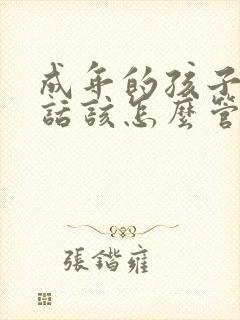 成年的孩子
話該怎麼管
張鍇雍